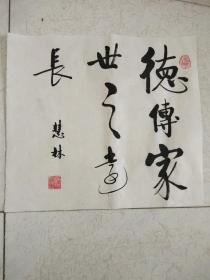 德傳家
世之遠
長
慧林